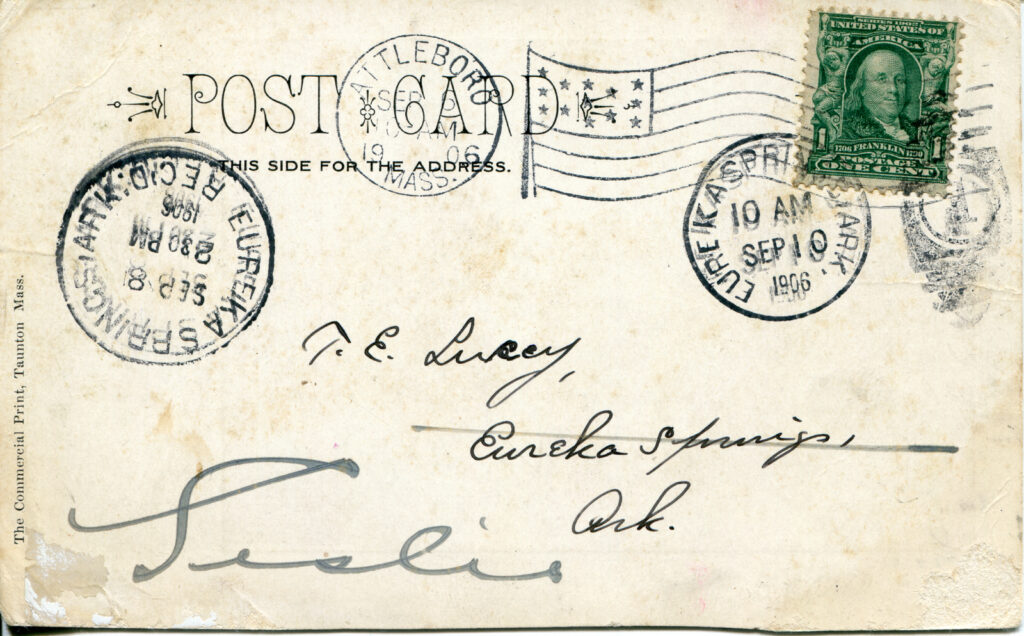 SERIES 1902
UNITED STATES OF
AMERICA
1 1
1706 FRANKLIN 1790
POSTAGE
ONE CENT
POST CARD
THIS SIDE FOR THE ADDRESS.
ATTLEBORO
SEP
AM
19 06
MASS.
EUREKA SPRINGS, ARK.
REC'D.
SEP 8
2 30 PM
1906
EUREKA SPRI ARK.
10 AM
SEP 10
1906
T. E. Lucey,
Eureka Springs,
Ark.
Leslie
The Commercial Print, Taunton Mass.